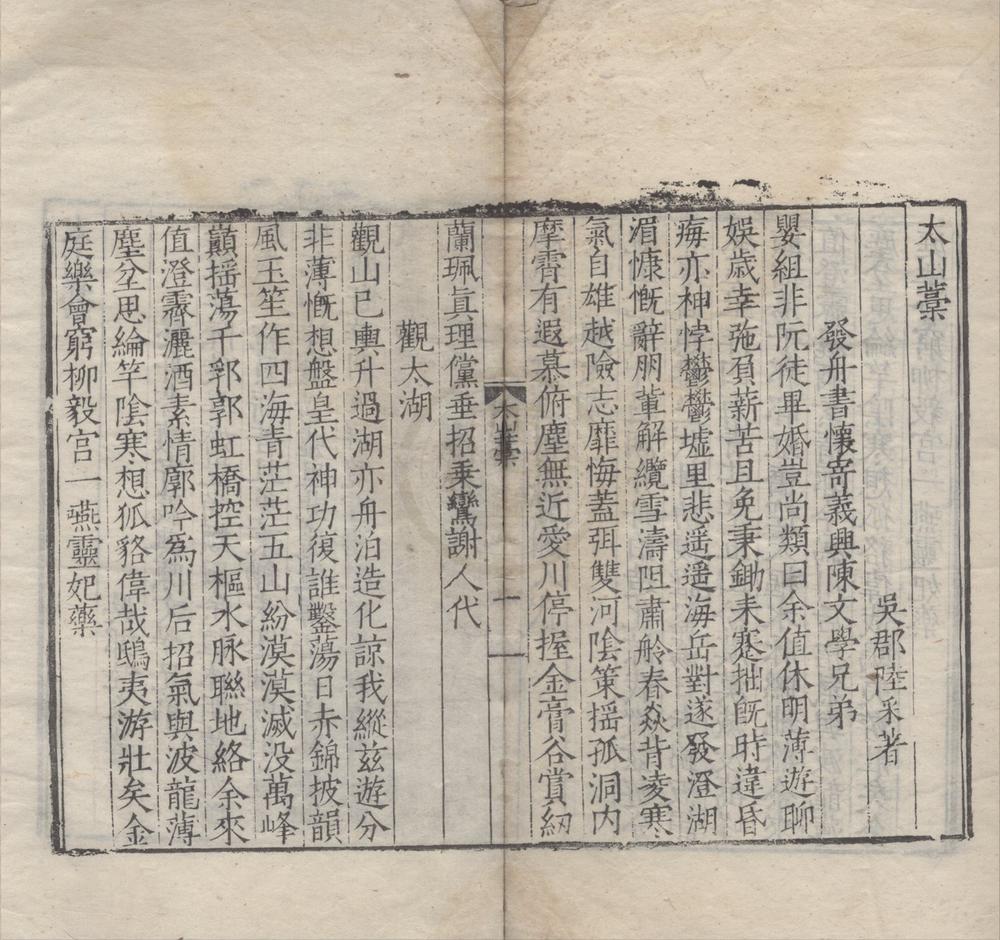 太山藁
吳郡陸采著
發舟書懷寄義興陳文學兄弟
嬰組非阮徒畢婚豈尚類曰余值休明薄遊聊
娛歲幸弛負薪苦且免秉鋤耒蹇拙旣時違昏
痗亦神悖鬱鬱墟里悲遥遥海岳對遂發澄湖
湄慷慨辭朋輩解纜雪濤阻肅舲春焱背凌寒
氣自雄越險志靡悔蓋弭雙河陰策摇孤洞内
摩霄有遐慕俯塵無近愛川停握金膏谷賞紉
蘭珮眞理儻垂招乗鸞謝人代
觀太湖
觀山已輿升過湖亦舟泊造化諒我縱兹遊分
非薄慨想盤皇代神功復誰鑿蕩日赤錦披韻
風玉笙作四海青茫茫五山紛漠漠滅没萬峰
顛揺蕩千郛郭虹橋控天樞水脉聯地絡余來
值澄霽灑酒素情廓吟爲川后招氣與波龍薄
塵坌思綸竿陰寒想狐貉偉哉鴟夷游壯矣金
庭樂會窮柳毅宫一嚥靈妃藥
太山藁
一